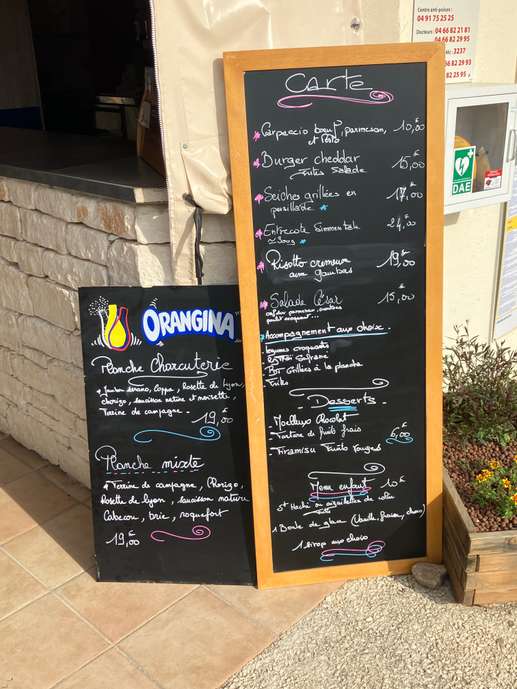 Centre anti-poison :
04 91 75 25 25
Docteurs : 04 66 82 21 81
04 66 82 29 95
3237
66 82 29 93
DAE
Carte
Carpaccio bœuf, parmesan, 10,00€
et Pesto
Burger cheddar 15,00€
Frites Salade
Seiches grillées en 17,00€
persillade
Entrecote Simmentale 24,00€
300g
Risotto cremeux 19,00€
aux gambas
Salade César 15,00€
Accompagnement aux choix
légumes croquants
Riz Safrané
à la plancha
Frites
Desserts
Moelleux chocolat
Tartare de fruits frais 6,00€
Tiramisu Fruits rouges
Menu enfant 10€
St Haché ou aiguillettes de
1 Boule de glace (Vanille, fraise, choco)
1 Sirop aux choix
ORANGINA
Planche Charcuterie
Jambon serano, Coppa, Rosette de lyon,
chorizo, saucisson nature et noisette,
Terrine de campagne. 19,00€
Planche mixte
Terrine de campagne, Chorizo,
Rosette de lyon, saucisson nature
Cabecou, brie, roquefort
19,00€